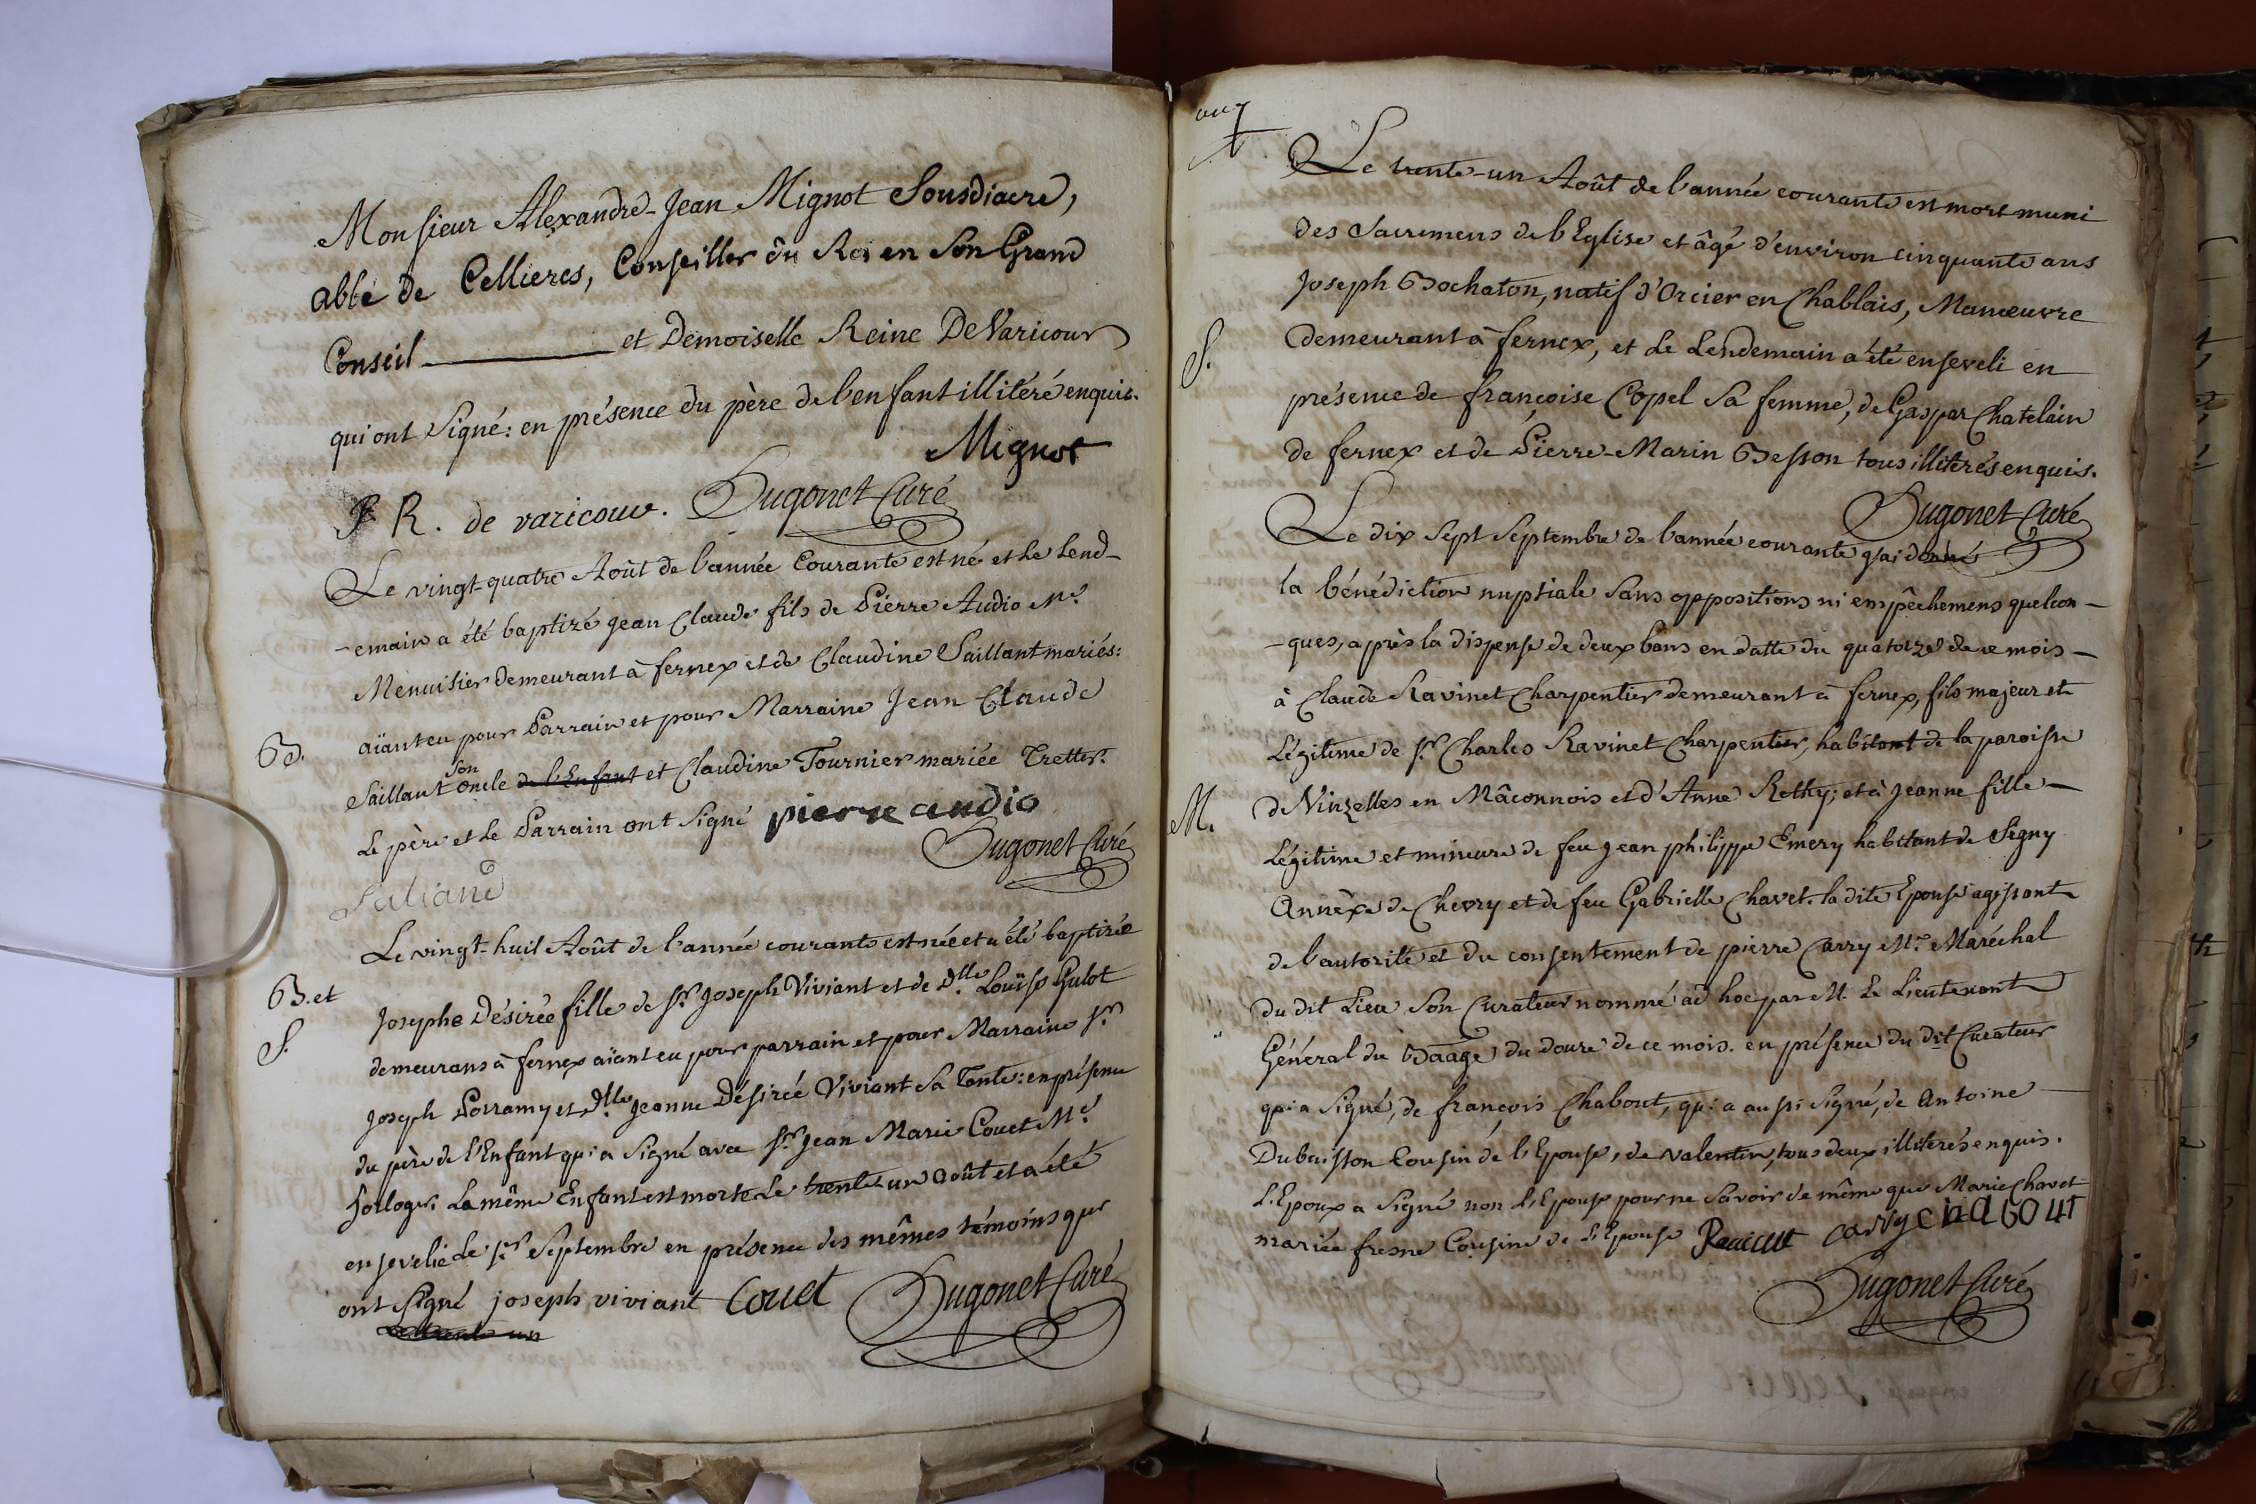 Monsieur Alexandre-Jean Mignot Sousdiacre,
abbé de Cellieres, Conseiller du Roi en Son Grand
Conseil et Demoiselle Reine De Varicour
qui ont Signé: en présence du père de l'enfant illitéré enquis.
Mignot
R. de varicour. Hugonet Curé
Le vingt-quatre Août de l'année Courante est né et le lend-
-emain a été baptizé Jean Claude fils de Pierre Audio Me
Menuisier demeurant à fernex et de Claudine Saillant mariés:
B. aïant eu pour Parrain et pour Marraine Jean Claude
Saillant son Oncle de l'Enfant et Claudine Fournier mariée Tretter.
Le père et le Parrain ont Signé pierre audio
Hugonet Curé
Saliand
Le vingt-huit Août de l'année courante est née et a été baptizée
B. et
S.
Josephe Désirée fille de Sr. Joseph Viviant et de Dlle Louïse Gulot
demeurans à fernex aïant eu pour parrain et pour Marraine Sr.
Joseph Porramy et Dlle Jeanne Désirée Viviant Sa Tante: en présence
du père de l'Enfant qui a Signé avec Sr. Jean Marie Couet Me
horloger. La même Enfant est morte Le trente un août et a été
ensevelie le 1er Septembre en présence des mêmes témoins que
ont Signé joseph viviant Couet Hugonet Curé
Le trente-un Août de l'année courante est mort muni
des Sacremens de l'Eglise et âgé d'environ cinquante ans
Joseph Bochaton, natif d'Orcier en Chablais, Manœuvre
S. demeurant à fernex, et Le Lendemain a été enseveli en
présence de françoise Copel Sa femme, de Gaspar Chatelain
de fernex et de Pierre-Marin Besson tous illiterés enquis.
Hugonet Curé
Le dix Sept Septembre de l'année courante j'ai donné
la bénédiction nuptiale Sans oppositions ni empêchemens quelcon-
-ques, après la dispense de deux bans en datte du quatorze de ce mois-
à Claude Ravinet Charpentier demeurant à fernex, fils majeur et
Légitime de Sr. Charles Ravinet Charpentier, habitant de la paroisse
M. de Vinzelles en Mâconnois et d'Anne Rethy; et à Jeanne fille-
Légitime et mineure de feu Jean philippe Emery habitant de Segny
Annèxe de Chevry et de feu Gabrielle Chavet. la dite Epouse agissant
de l'autorité et du consentement de pierre Carry Me Maréchal
du dit Lieu Son Curateur nommé ad hoc par M. Le Lieutenant
Général du Baage du douze de ce mois. en présence du dit Curateur
qui a Signé, de françois Chabout, qui a aussi Signé, de Antoine
Dubuisson Cousin de l'Epouse, de valentin, tous deux illiterés enquis.
L'Epoux a Signé non L'Epouse pour ne Savoir de même que Marie Chavet
mariée fresne Cousine de L'Epouse Ravinet carry chabout
Hugonet Curé